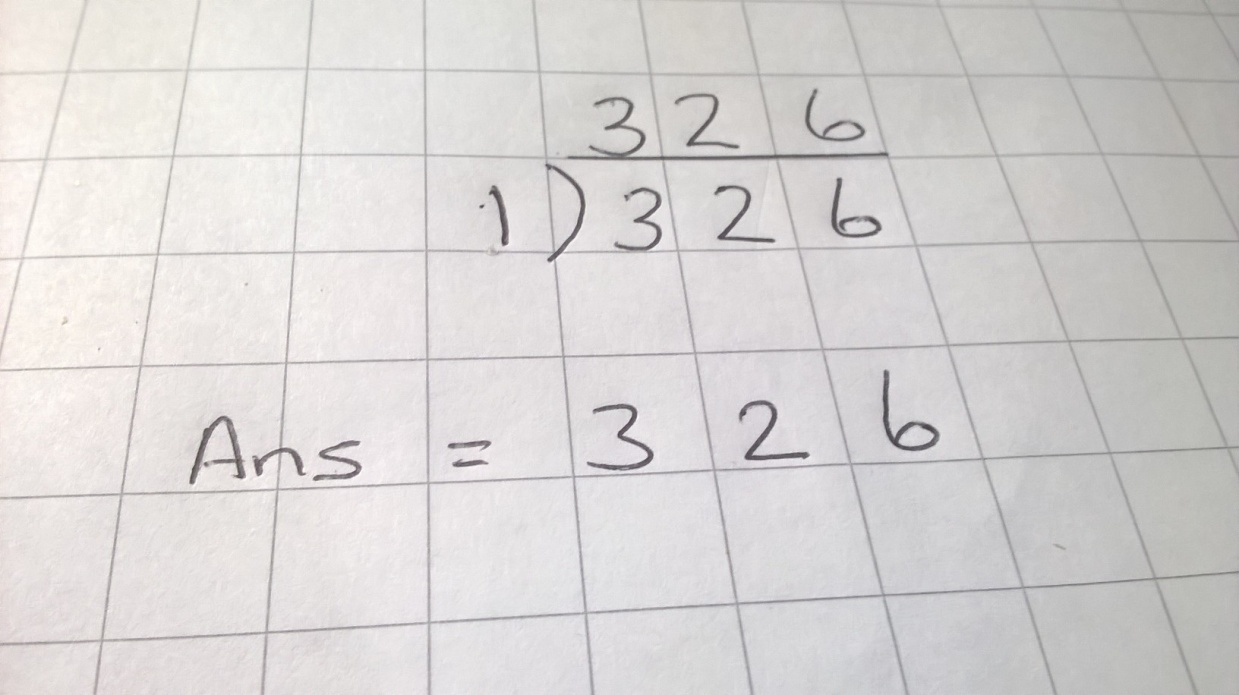 3 2 6
1 ) 3 2 6
Ans = 3 2 6